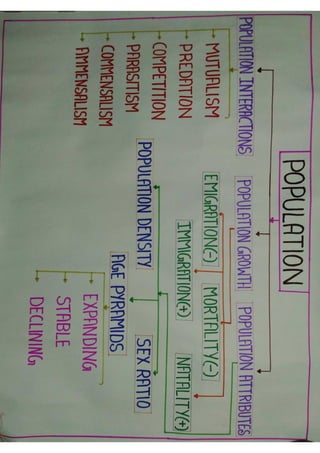 POPULATION
POPULATION INTERACTIONS
POPULATION GROWTH
POPULATION ATTRIBUTES
MUTUALISM
PREDATION
COMPETITION
PARASITISM
COMMENSALISM
AMMENSALISM
EMIGRATION(-)
MORTALITY(-)
IMMIGRATION(+)
NATALITY(+)
POPULATION DENSITY
SEX RATIO
AGE PYRAMIDS
EXPANDING
STABLE
DECLINING